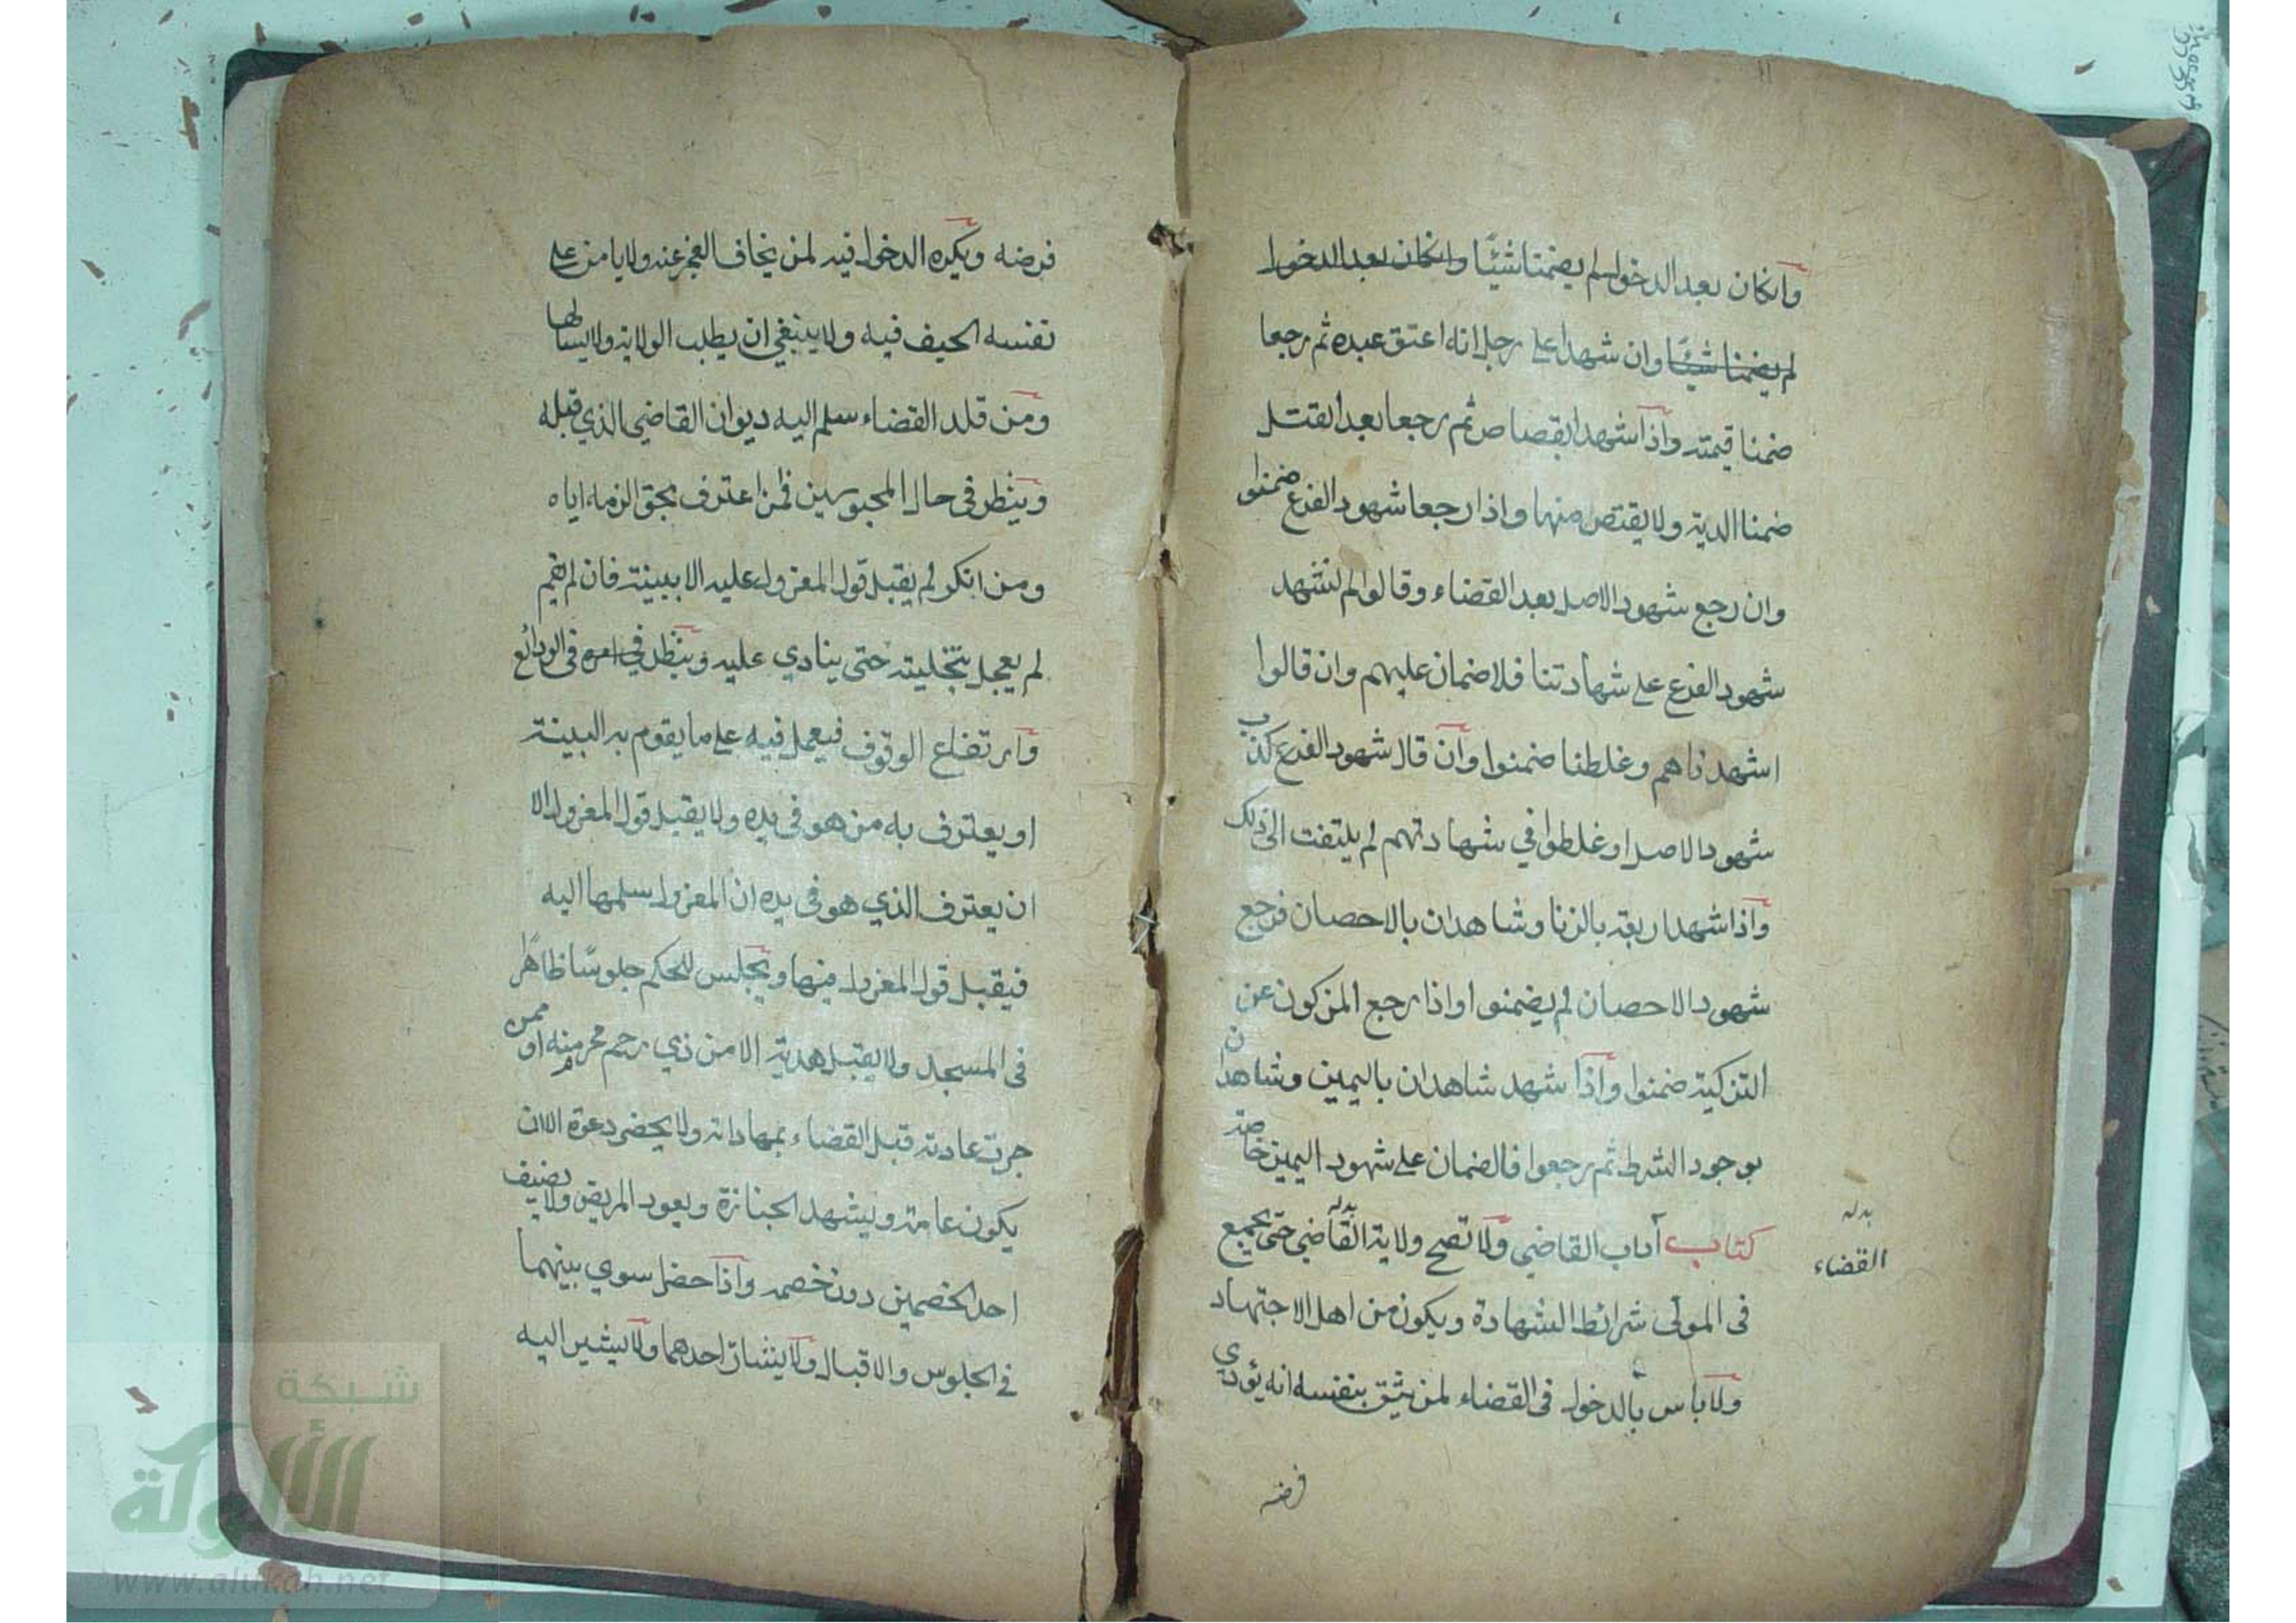 وانكان بعد الدخول لم يضمنا شيئًا وانكان بعد الدخول
لم يضمنا شيئًا وان شهدا على رجل انه اعتق عبده ثم رجعا
ضمنا قيمته واذا شهدا بقصاص ثم رجعا بعد القتل
ضمنا الدية ولا يقتص منهما واذا رجعا شهود الفرع ضمنوا
وان رجع شهود الاصل بعد القضاء وقالوا لم نشهد
شهود الفرع على شهادتنا فلا ضمان عليهم وان قالوا
اشهدناهم وغلطنا ضمنوا وان قال شهود الفرع كذب
شهود الاصل او غلطوا في شهادتهم لم يلتفت الى ذلك
واذا شهد اربعة بالزنا وشاهدان بالاحصان فرجع
شهود الاحصان لم يضمنوا واذا رجع المزكون عن
التزكية ضمنوا واذا شهد شاهدان باليمين وشاهدان
بوجود الشرط ثم رجعوا فالضمان على شهود اليمين خاصة
كتاب آداب القاضي ولا تصح ولاية القاضي حتى يجمع
بدله
القضاء
في المولى شرائط الشهادة ويكون من اهل الاجتهاد
ولا باس بالدخول في القضاء لمن يثق بنفسه انه يؤدي
فرضه
فرضه ويكره الدخول فيه لمن يخاف العجز عنه ولا يامن على
نفسه الحيف فيه ولا ينبغي ان يطلب الولاية ولا يسالها
ومن قلد القضاء سلم اليه ديوان القاضي الذي قبله
وينظر في حال المحبوسين فمن اعترف بحق الزمه اياه
ومن انكر لم يقبل قول المعزول عليه الا ببينة فان لم تقم
لم يعجل بتخليته حتى ينادي عليه وينظر في امره في الودائع
وارتفاع الوقوف فيعمل فيه على ما يقوم به البينة
او يعترف به من هو في يده ولا يقبل قول المعزول الا
ان يعترف الذي هو في يده ان المعزول سلمها اليه
فيقبل قول المعزول فيها ويجلس للحكم جلوسًا ظاهرًا
في المسجد ولا يقبل هدية الا من ذي رحم محرم منه او ممن
جرت عادته قبل القضاء بمهاداته ولا يحضر دعوة الا ان
يكون عامة ويشهد الجنازة ويعود المريض ولا يضيف
احد الخصمين دون خصمه واذا حضرا سوي بينهما
في الجلوس والاقبال ولا يشار احدهما ولا يشير اليه
شبكة
الألوكة
www.alukah.net